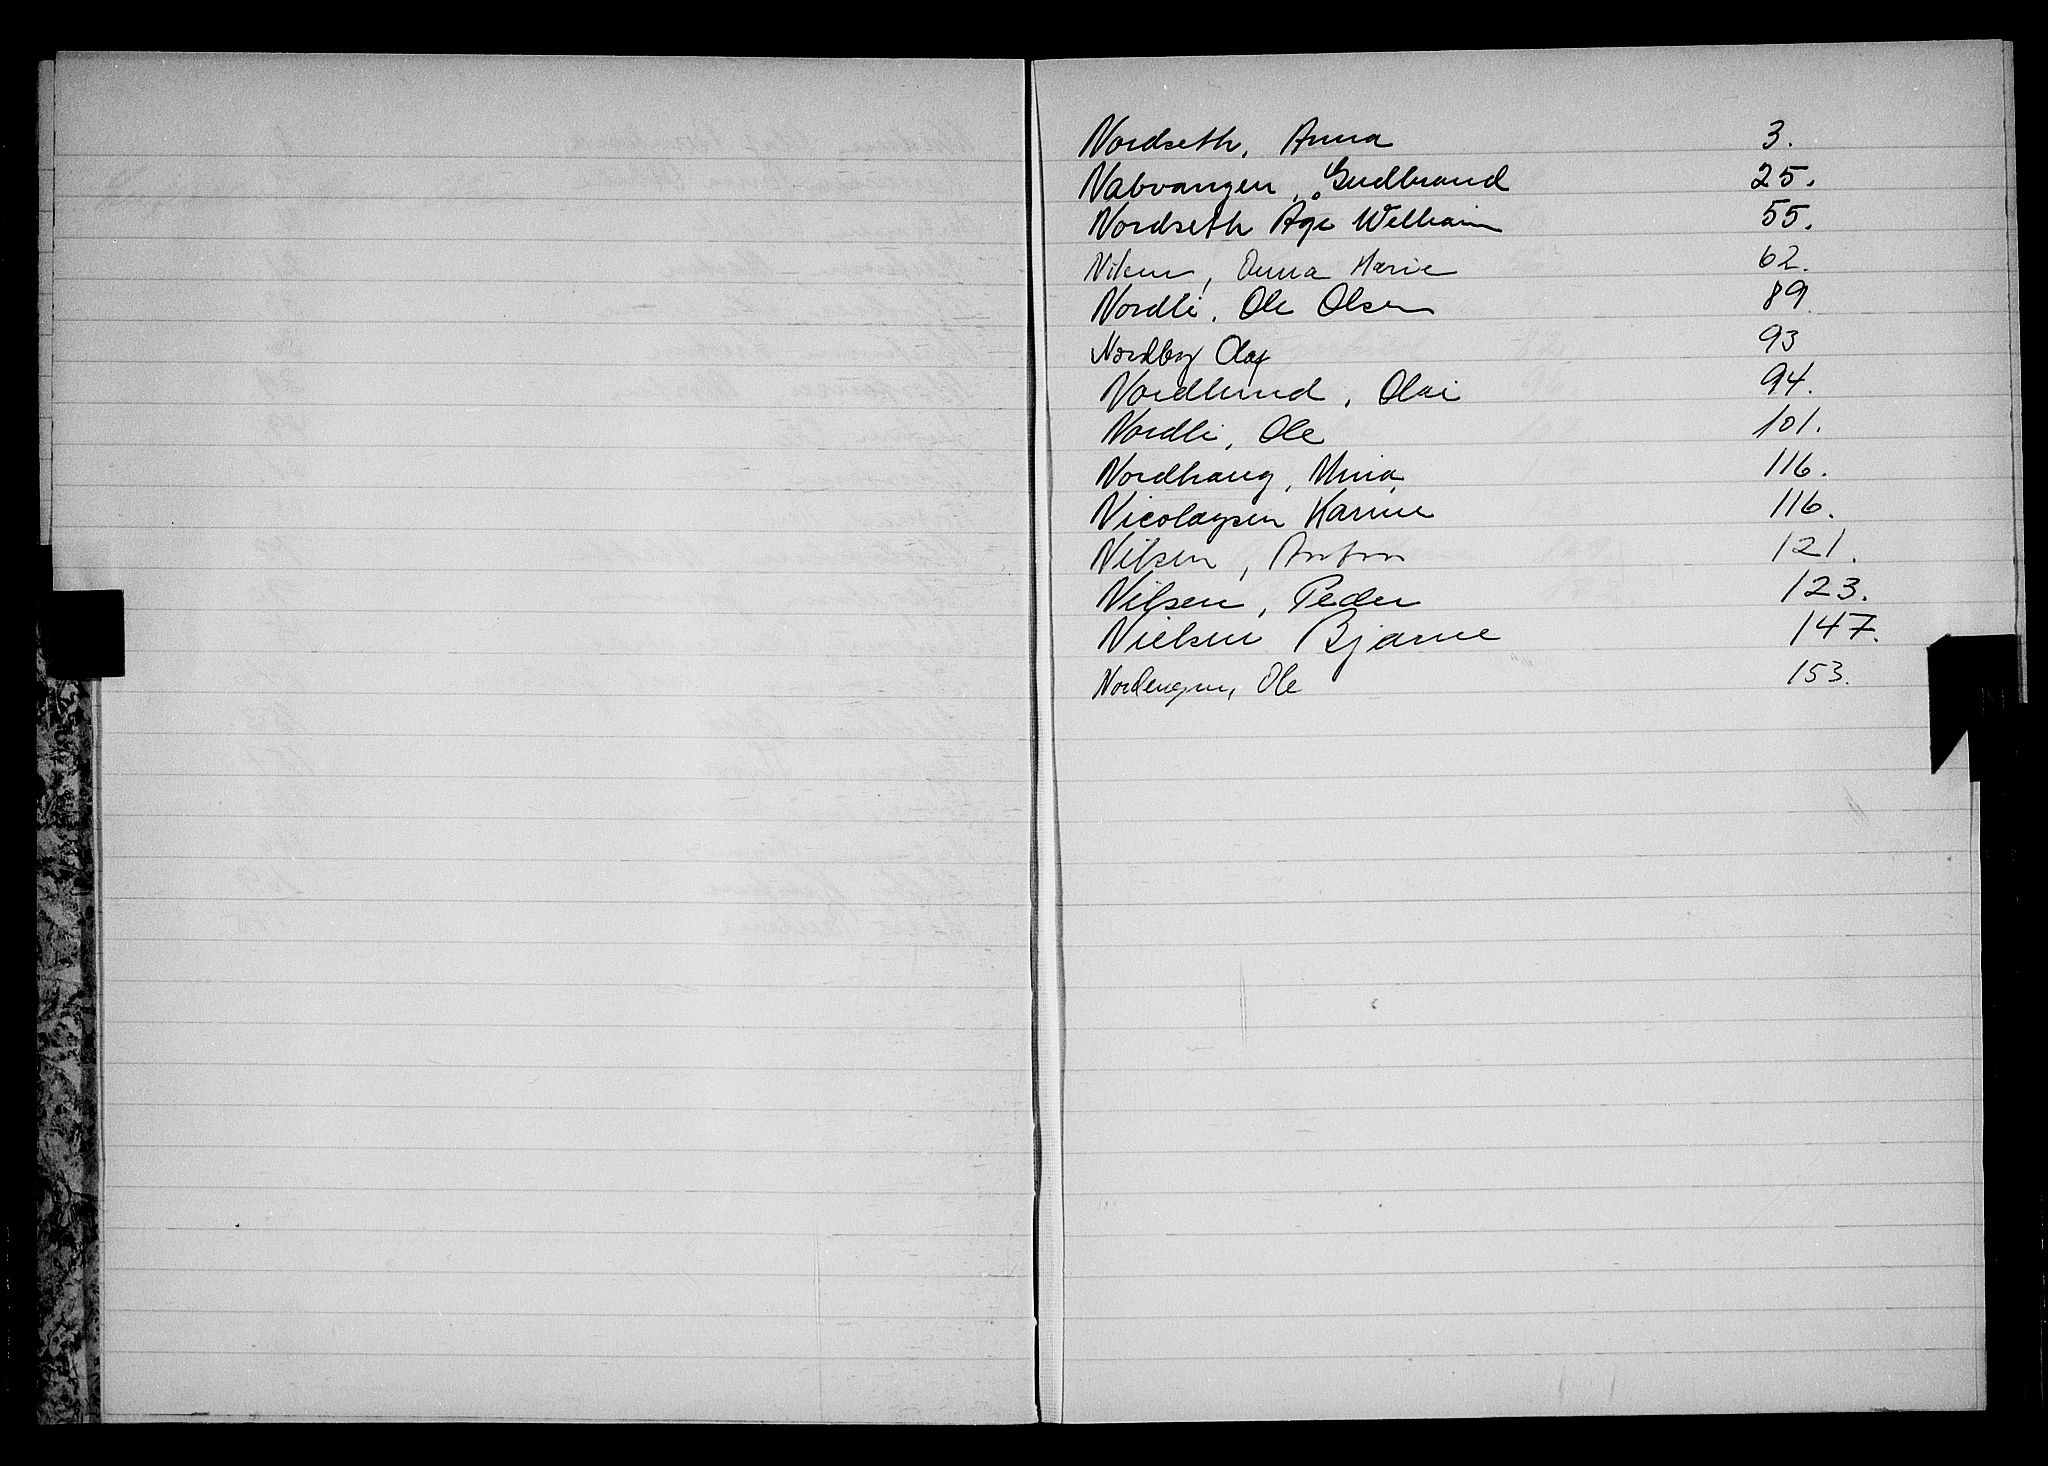 Nordseth, Anna 3.
Nabvangen, Gudbrand 25.
Nordseth Åge William 55.
Nilsen, Anna Marie 62.
Nordli, Ole Olsen 89.
Nordby Olaf 93
Nordlund, Olai 94.
Nordli, Ole 101.
Nordhaug, Mina 116.
Nicolaysen Karine 116.
Nilsen, Anton 121.
Nilsen, Peder 123.
Nielsen Bjarne 147.
Nordengen, Ole 153.